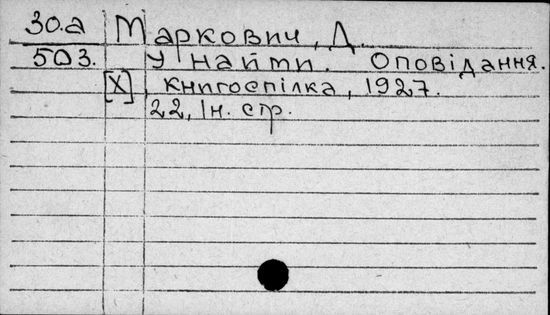 30.а Маркович, Д.
503. У найти. Оповідання.
[Х], Книгоспілка, 1927.
22, Ін. стр.